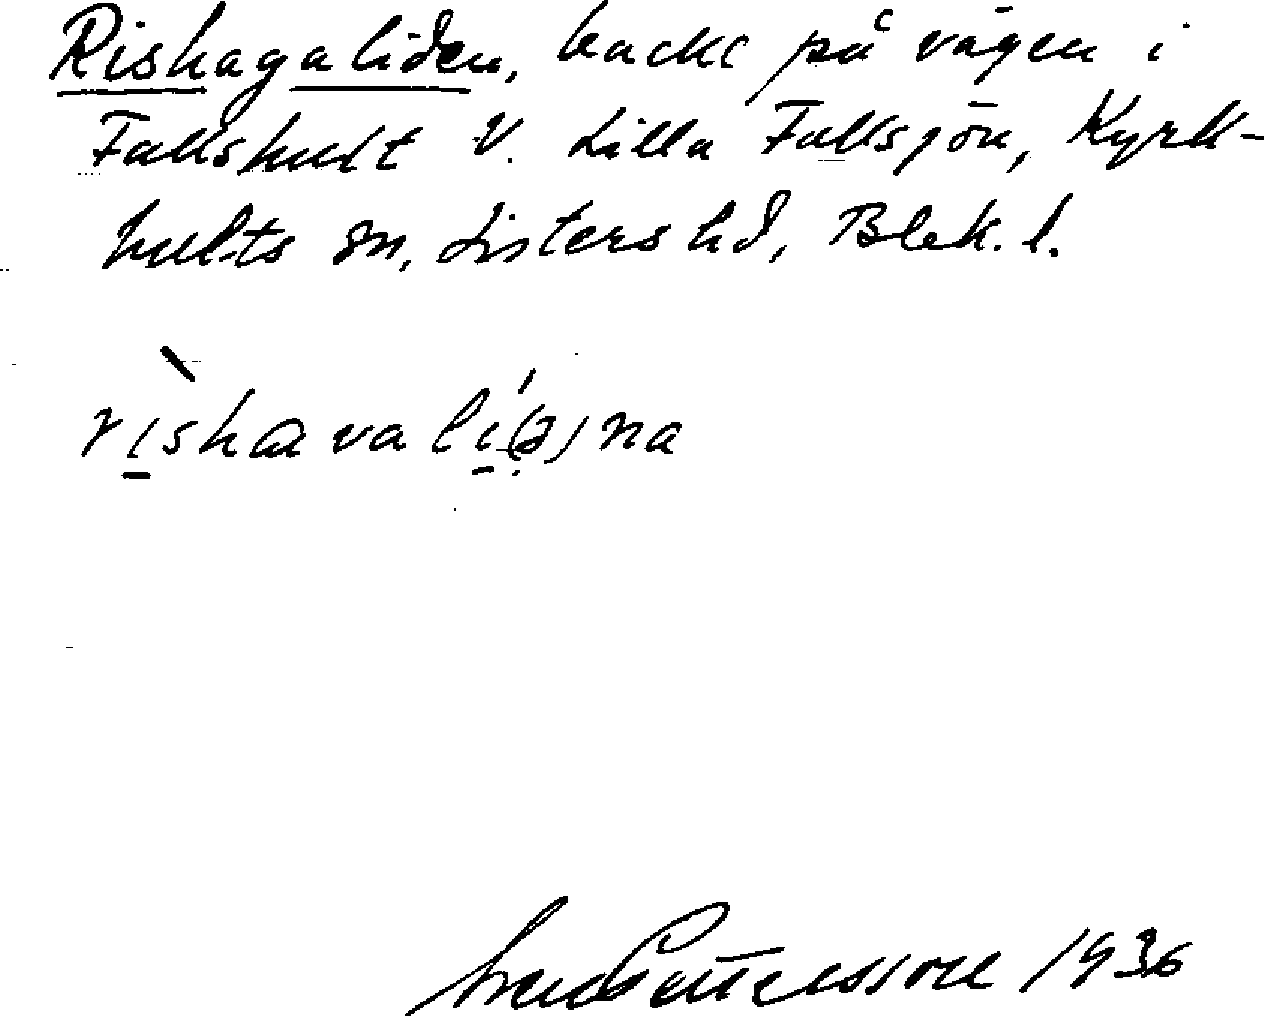 Rishagaliden, backe på vägen i
Fallshult V. Lilla Fallsjön, Kyrk-
hults sn, Listers hd, Blek. l.
rishavali(ə)na
Pettersson 1936